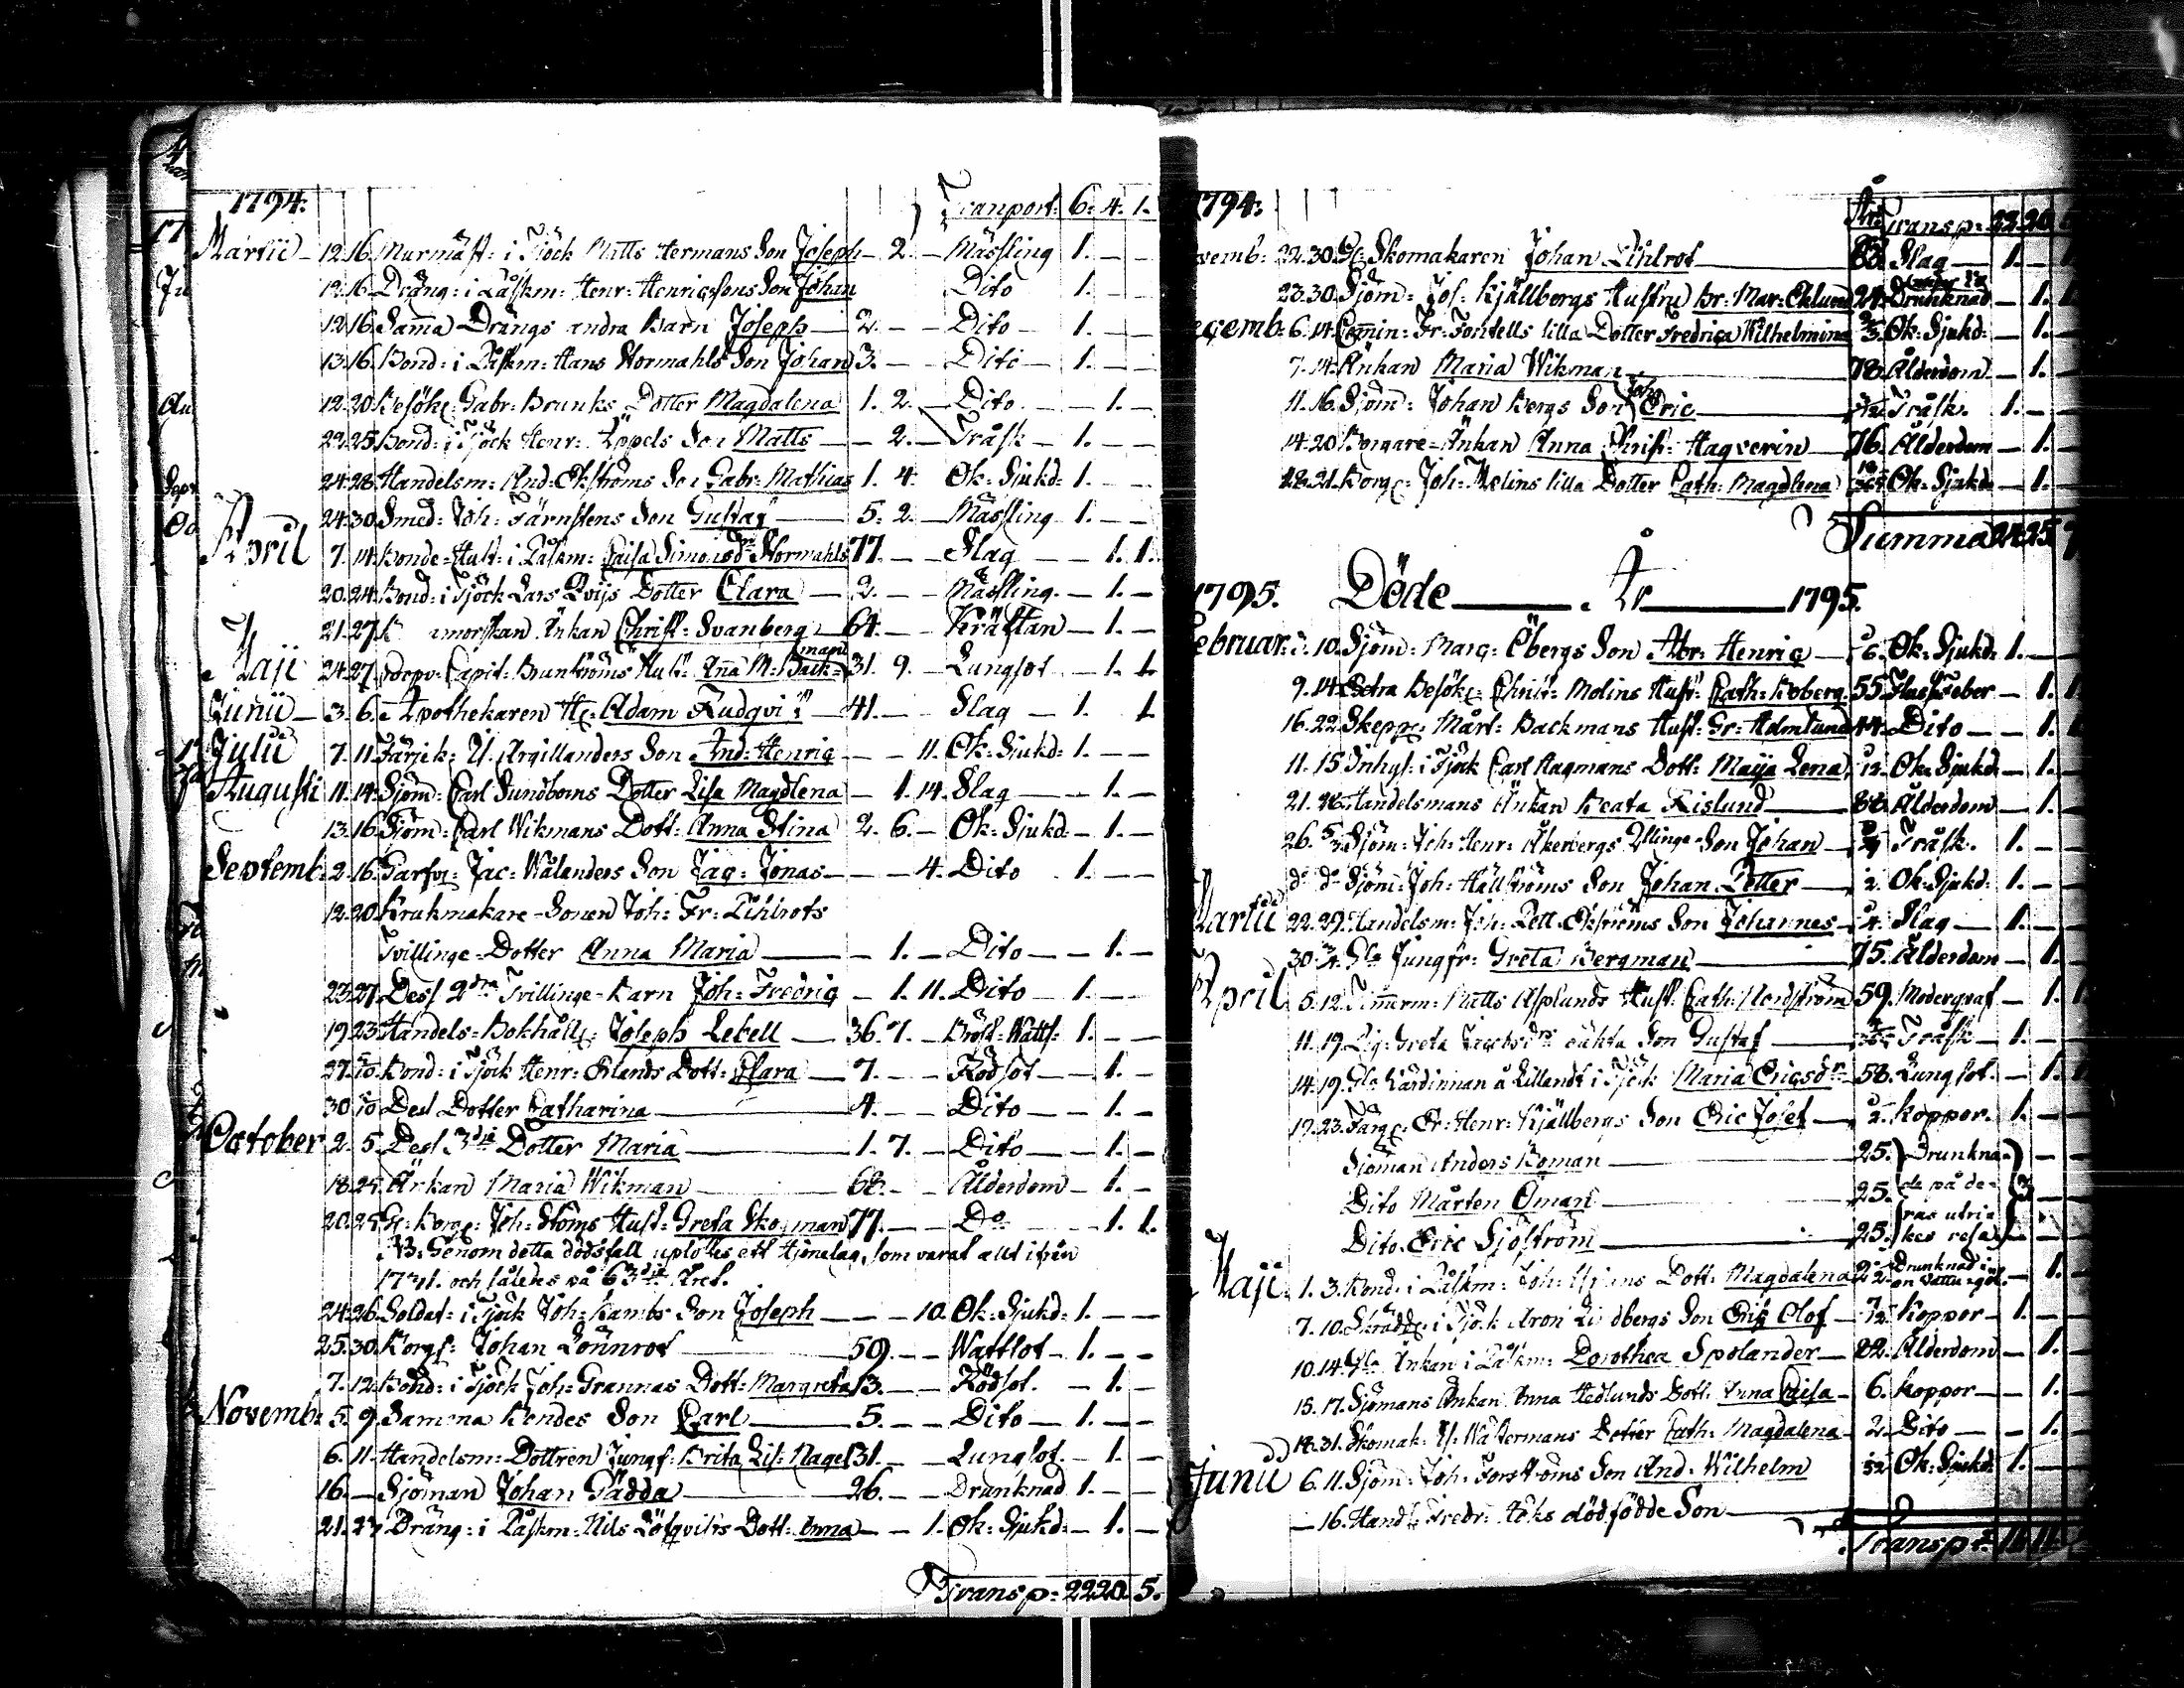 1794. Tranport: 6. 4. 1.
Martii 12. 16. Murmäst: i Tjöck Matts Hermans Son Joseph — 2. — Mässling 1. — —
12. 16. Dräng: i Låskm: Henr: Henricssons Son Johan Dito 1. — —
12. 16. Samma Drängs andra Barn Joseph — 2. — — Dito 1. — —
13. 16. Bond: i Låskm: Hans Stormahls Son Johan 3. — — Dito 1. — —
12. 20. Besökr: Gabr: Brunks Dotter Magdalena 1. 2. — Dito — 1. —
22. 25. Bond: i Tjöck Henr: Son Matts — 2. — Tråsk 1. — —
24. 28. Handelsm: And: Ekströms Son Gabr: Mathias 1. 4. Ok: Sjukd: 1. — —
24. 30. Smed: Joh: Färnstens Son Gustaf — 5. 2. — Mässling 1. — —
April 7. 14. Bonde-Hust: i Låskm: Caisa Simonsdr Stormahls 77. — — Slag — 1. 1.
20. 24. Bond: i Tjöck Lars Qvijs Dotter Clara — 2. — — Mässling — 1. —
21. 27. Änkan Christ: Svanberg — 64. — Kräftan — 1. —
Maji 24. 27. Capit: Brunströms Hust: Anna M: Back= man 31. 9. — Lungsot — 1. 1.
Junii 3. 6. Apothekaren Hr: Adam — 41. — Slag — 1. 1.
Julii 7. 11. Färjek: Argillanders Son And: Henric — — 11. Ok: Sjukd: 1. — —
Augusti 11. 14. Sjöm: Carl Sundboms Dotter Lisa Magdlena — 1. 14. Slag — 1. —
13. 16. Sjöm: Carl Wikmans Dott: Anna Stina 2. 6. — Ok: Sjukd: — 1. —
Septemb: 2. 16. Garfvr: Jac: Wålanders Son Jac: Jonas — — 4. Dito 1. — —
12. 20. Krukmakare-Sonen Joh: Fr: Lihlrots
Tvillinge-Dotter Anna Maria — 1. — Dito — 1. —
23. 27. Dess 2dra Tvillinge-Barn Joh: Fredric — 1. 11. Dito 1. — —
19. 23. Handels-Bokhållr: Joseph Lebell — 36. 7. — Bröst-Watts: 1. — —
27. 5/10. Bond: i Tjöck Henr: Eklands Dott: Clara — 7. — — Rödsot — 1. —
30. 5/10 Dess Dotter Catharina — 4. — — Dito — 1. —
October 2. 5. Dess 3die Dotter Maria — 1. 7. — Dito — 1. —
18. 24. Änkan Maria Wikman — 68. — Ålderdom — 1. —
20. 25. Gl: Borgr: Joh: Ståms Hust: Greta Skogman 77. — — Do — 1. 1.
NB. Genom detta dödsfall uplöstes ett Hjonelag, som varat allt ifrån
1731. och således på 63die Året.
24. 26. Soldat: i Tjöck Joh: Kambs Son Joseph — — 10. Ok: Sjukd: 1. — —
25. 30. Borgr: Johan Lönnrot 59. — — Wattsot 1. — —
7. 12. Bond: i Tjöck Joh: Grannas Dott: Margreta 13. — — Rödsot. — 1. —
Novemb: 5. 9. Samma Bondes Son Carl — 5. — — Dito — 1. — —
6. 11. Handelsm: Dottren Jungf: Brita Lis: Nagel 31. — — Lungsot. — 1. —
16. — Sjöman Johan Gädda — 26. — — Drunknad 1. — —
21. 23. Dräng: i Låskm: Nils Löfqvists Dott: Anna — — 1. Ok: Sjukd: — 1. —
Transp: 22 20. 5.
1794. År Transp: 22. 20. 5
vemb: 22. 30. Gl: Skomakaren Johan Lihlrot — 83. Slag — 1. —
23. 30. Sjöm: Jos: Kjällbergs Hustru Br: Mar: Eklund 24. Drunknad — 1.
ecemb: 6. 14. Comin: Fr: Fontells lilla Dotter Fredrica Wilhelmina Ok: Sjukd: — 1.
7. 14. Änkan Maria Wikman — 78. Ålderdom — 1.
11. 16. Sjöm: Johan Bergs Son Joh: Eric — Tråsk. 1. —
14. 20. Borgare-Änkan Anna Christ: Hagverin — 76. Ålderdom — 1.
18. 21. Borgr: Joh: Melins lilla Dotter Cath: Magdlena Ok: Sjukd: — 1.
Summa 24. 25. 7
1795. Döde — År — 1795.
Februar: 5. 10. Sjöm: Marc: Öbergs Son Abr: Henric — 6. Ok: Sjukd: 1. —
9. 14. Extra Besökr: Christ: Molins Hust: Cath: Boberg 55. — 1.
16. 22. Skeppr: Mårt: Backmans Hust: Gr: Holmlund 44. Dito — 1.
11. 15. Inhys: i Tjöck Carl Hagmans Dott: Maija Lena Ok: Sjukd: — 1.
21. 28. Handelsmans Änkan Beata Rislund — 88. Ålderdom — 1.
26. 5/3. Sjöm: Joh: Henr: Åkerbergs Tvillinge-Son Johan — Tråsk. 1. —
do do Sjöm: Joh: Hällströms Son Johan Petter — 2. Ok: Sjukd: 1. —
Martii 22. 29. Handelsm: Joh: Pett: Ekströms Son Johannes — 4. Slag — 1. —
30. 5/4. Gla Jungfr: Greta Bergman — 75. Ålderdom — 1.
April 5. 12. Timmerm: Matts Asplunds Hust: Cath: Nordström 59. Modergraf — 1.
11. 19. Pig: Greta oäkta Son Gustaf — Tråsk — 1. —
14. 19. Gla Värdinnan å Lillandt i Tjöck Maria Ericsdr 58. Lungsot. — 1.
19. 23. Färgr: Er: Henr: Kjällbergs Son Eric Josef — 2. Koppor. 1. —
Sjöman Anders Boman — 25. Drunkna=
Dito Mårten Öman — 25. de på de= 3
ras utri=
Dito Eric Sjöström — 25. kes resa
Maji 1. 3. Bond: i Låskm: Joh: Dott: Magdalena 2. Drunknad i
en vattu=göl — 1.
7. 10. Skräddr: i Tjöck Aron Lindbergs Son Eric Olof — Koppor — 1. —
10. 14. Gla Änkan i Låskm: Dorothea Spolander — 82. Ålderdom — 1.
15. 17. Sjömans Änkan Anna Hedlunds Dott: Anna Caisa — 6. Koppor — 1.
18. 31. Skomak: Is: Wästermans Dotter Cath: Magdalena — 2. Dito — 1.
Junii 6. 11. Sjöm: Joh: Forsströms Son And: Wilhelm Ok: Sjukd: 1. —
— 16. Hand: Fredr: Höks dödfödde Son —
Transpt: 11. 11.